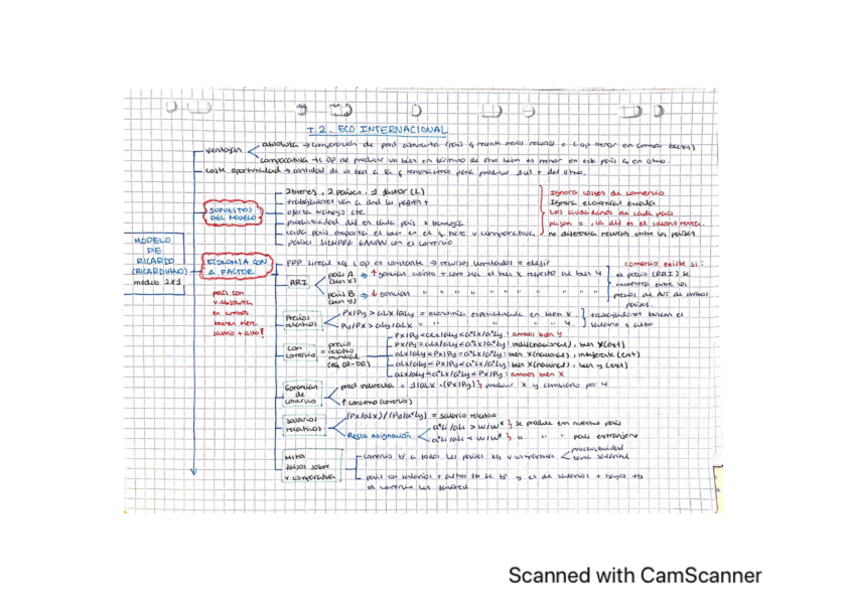 T.2. ECO INTERNACIONAL
ventajas
absoluta → comparación de prod absoluta (país q necesite menos recursos o C op menor en ambos bienes)
comparativa → C OP de producir un bien en término de otro bien es menor en este país q en otro.
coste oportunidad → cantidad de un bien a la q renunciamos para producir 1 ud + del otro.
SUPUESTOS DEL MODELO
2 bienes, 2 países, 1 factor (L)
trabajadores van a donde les paguen +
oferta trabajo cte
productividad dif en cada país x tecnología
cada país exporta el bien en el q tiene v comparativa
países SIEMPRE GANAN con el comercio
Ignora costes de comercio
Ignora economías escala
Los ciudadanos de cada país
no diferencia recursos entre los países
MODELO
DE
RICARDO
(RICARDIANO)
modelo 2X1
ECONOMÍA CON
1 FACTOR
país con
v absoluta
en ambos
bienes tiene
salario + alto!
FPP lineal xq C op es constante → recursos limitados = elegir
RRI
país A
(bien X)
país B
(bien Y)
comercio existe si:
el precio (RRI) se
encuentra entre los
precios de AUT de ambos
países.
Precios
relativos
Px/Py > aLx/aLy = economía especializada en bien X
Py/Px > aLy/aLx = " " " " Y.
trabajadores buscan el
salario + alto
Con
comercio
=
precio
relativo
mundial
(eq OR-DR)
Px/Py < aLx/aLy < a*Lx/a*Ly: ambos bien Y
Px/Py = aLx/aLy < a*Lx/a*Ly: indif(nacional), bien Y(ext)
aLx/aLy < Px/Py = a*Lx/a*Ly: bien X(nacional), indiferente (ext)
aLx/aLy < Px/Py < a*Lx/a*Ly: bien X(nacional), bien Y (ext)
aLx/aLy < a*Lx/a*Ly < Px/Py: ambos bien X
Ganancias
de
comercio
prod indirecta = 1/aLX · (Px/Py) } producir X y cambiarlo por Y
↑ consumo (comercio)
salarios
relativos
(Px/aLx)/(Py/a*Ly) = salario relativo
Regla asignación
a*Li/aLi > w/w* } se produce en nuestro país
a*Li/aLi < w/w* } " " " país extranjero
Mitos
falsos sobre
v comparativa
comercio b° a todos los países xq v comparativa
productividad
país con salarios + altos tb se b° y el de salarios + bajos tb
el comercio les favorece
Scanned with CamScanner